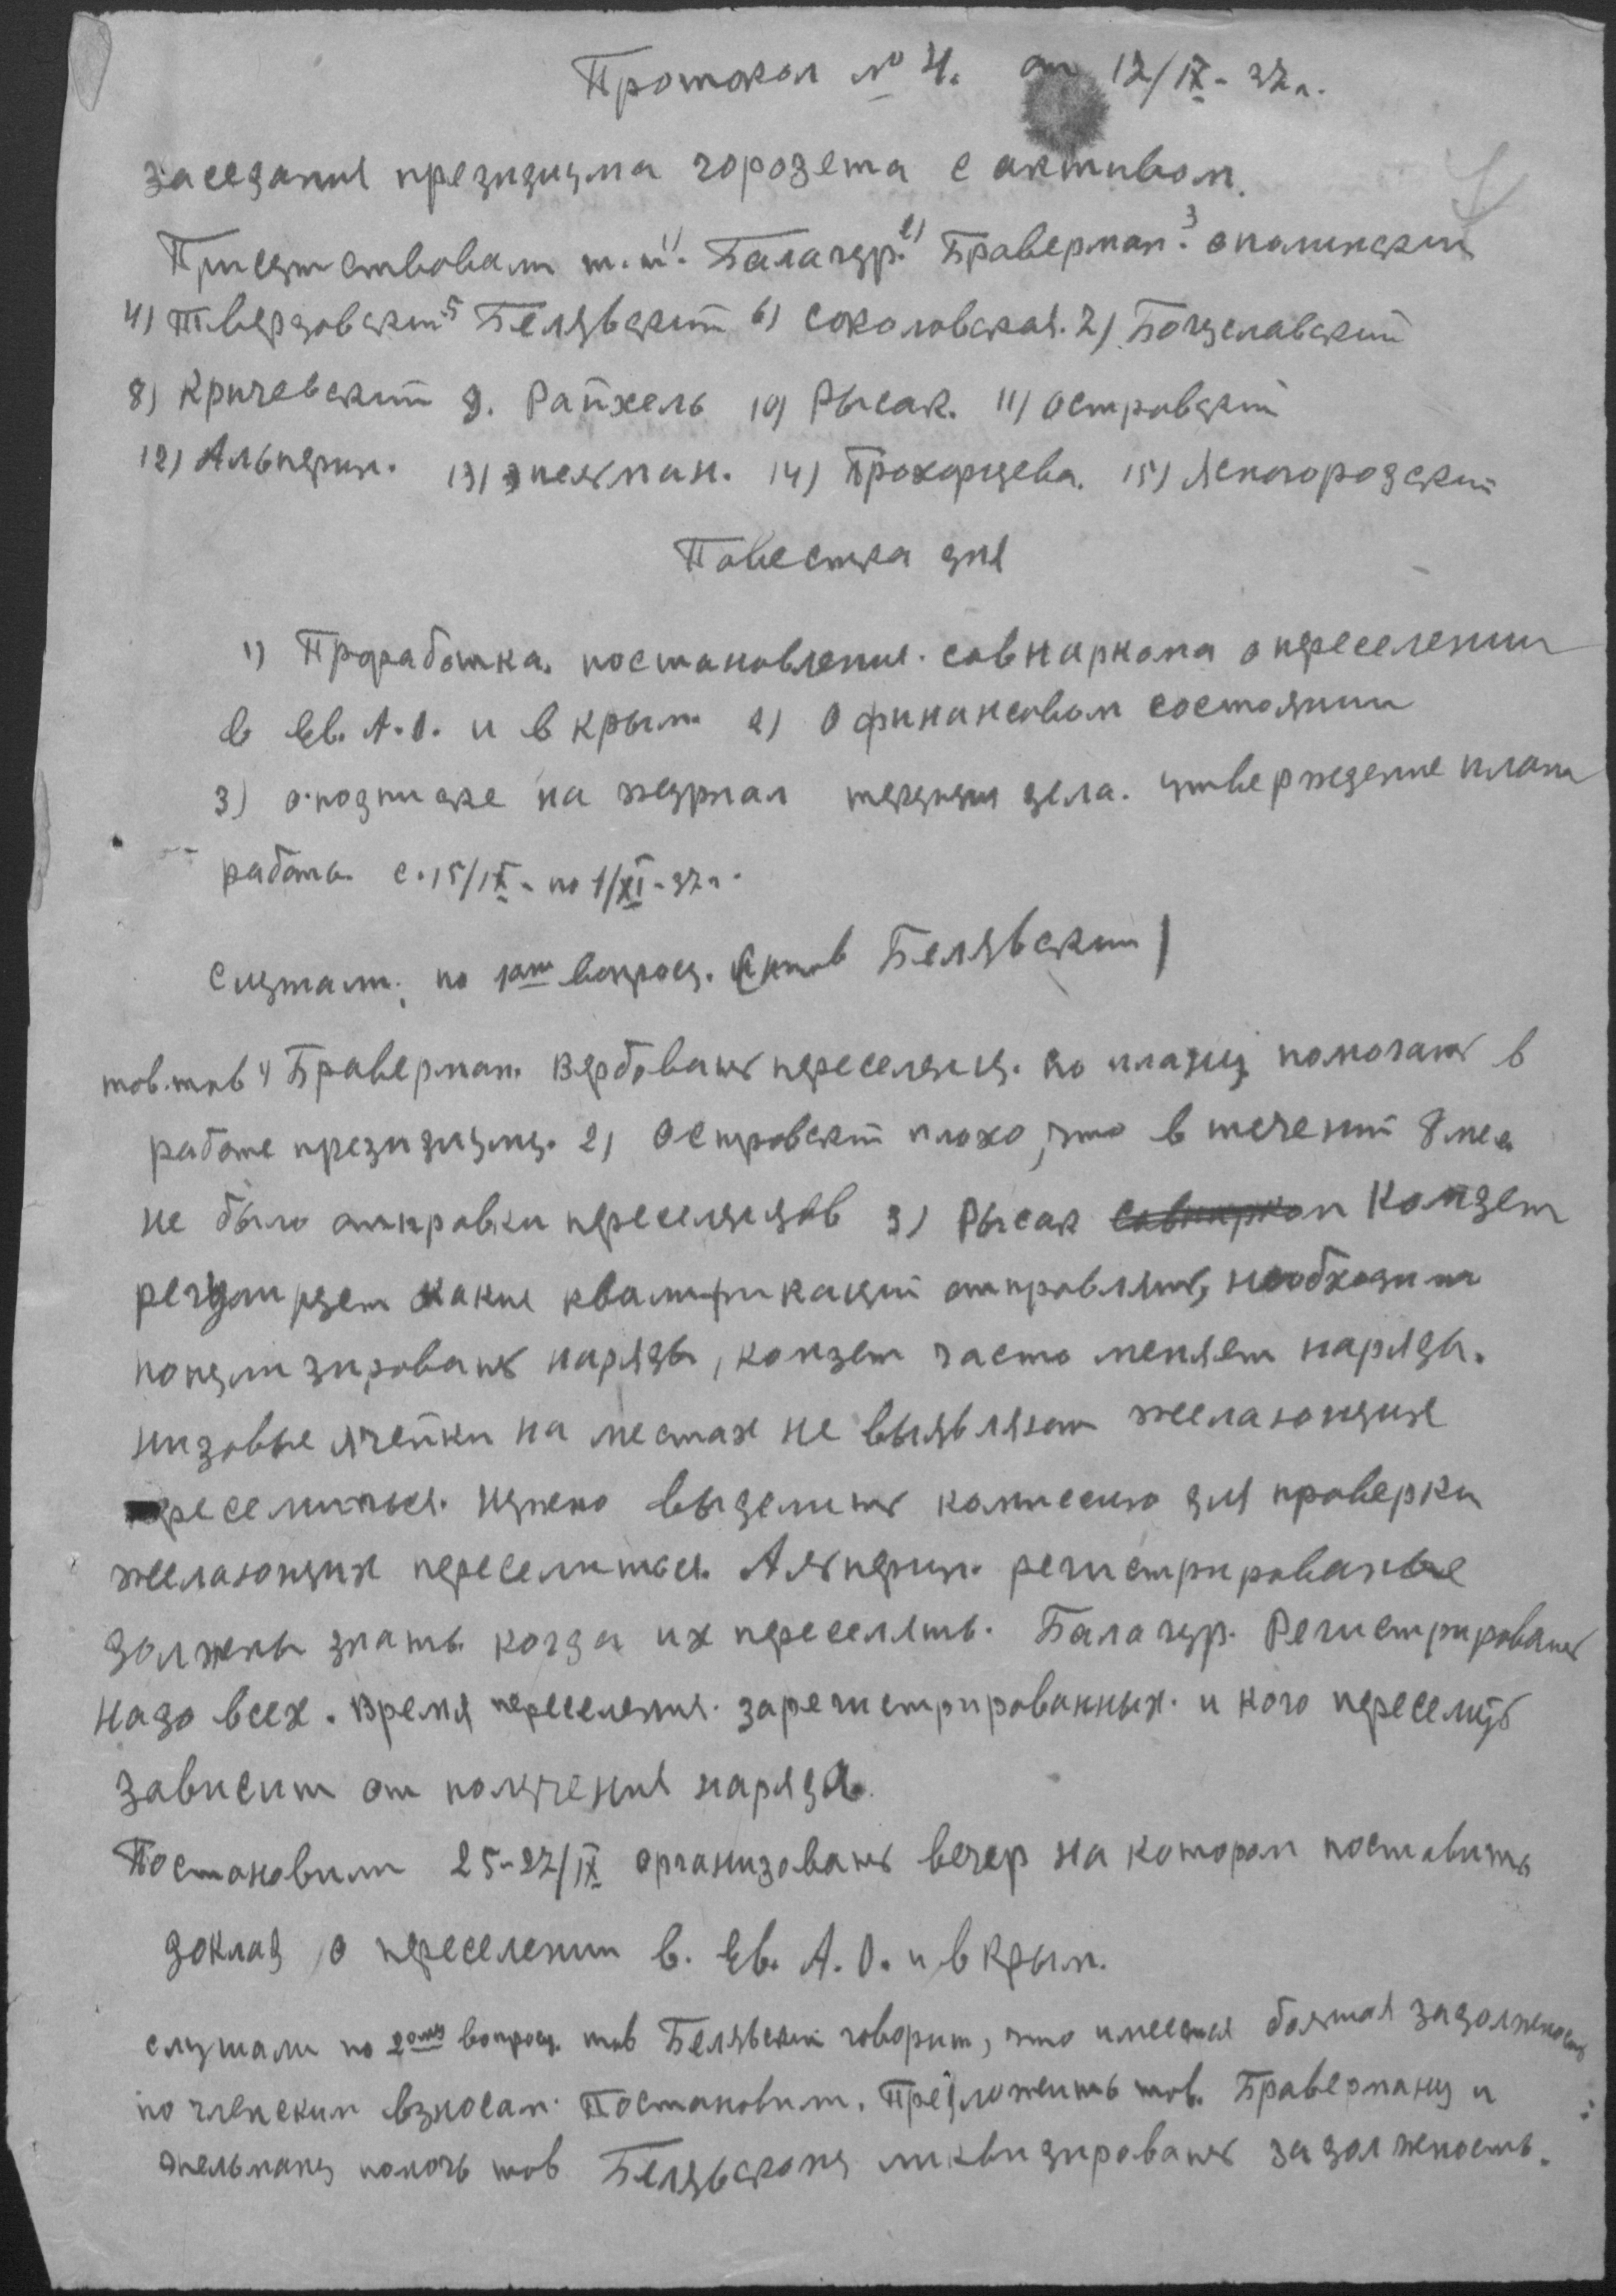 Протокол № 4. от 12/IX - 37 г.
заседания президиума горозета с активом.
Присутствовали т.т. 1) Балагур. 2) Браверман. 3 Ополинский
4) Твердовский 5 Белявский 6) Соколовская. 7) Богуславский
8) Кричевский 9. Райхель 10) Рысак. 11) Островский
12) Альперин. 13) Энельман. 14) Прохорцева. 15) Ясногородский
Повестка дня
1) Проработка. постановления. совнаркома о переселении
в Ев. А.О. и в Крым 2) О финансовом состоянии
3) о подписке на журнал текущии дела. утверждение плана
работы. с. 15/IX - по 1/XI - 37 г.
Слушали: по 1ом вопросу. (тов Белявский)
тов. тов 1) Браверман. Вербовать переселенц. по плану помогать в
работе президиуму. 2) Островский плохо, что в течений 8 мес
не было отправки переселенцов 3) Рысак Совнарком Комзет
регулирует какие квалификаций отправлять, необходимо
популизировать наряды, комзет часто меняет наряды.
низовые ячейки на местах не выявляют желающих
переселиться. Нужно выделить комиссию для проверки
желающих переселиться. Альперин. регистрированые
должны знать когда их переселять. Балагур. Регистрировать
надо всех. Время переселения. зарегистрированных. и кого переселить
зависит от получения наряда.
Постановили 25-27/IX организовать вечер на котором поставить
доклад о переселении в. Ев. А.О. и в Крым.
слушали по 2ому вопросу. тов Белявский говорит, что имеется большая задолжность
по членским взносам. Постановили. Предложить тов. Браверману и
Энельману помочь тов Белявскому ликвидировать задолжность.